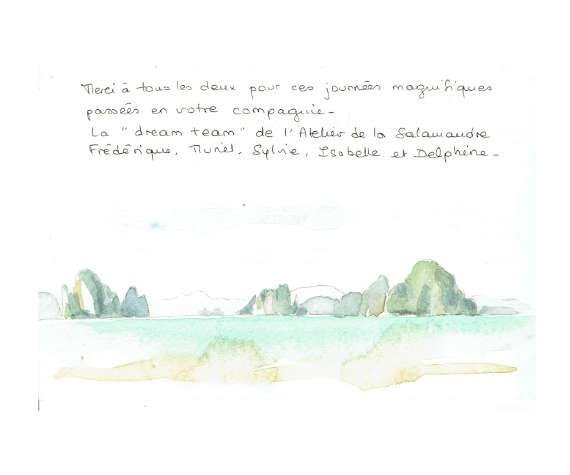 Merci à tous les deux pour ces journées magnifiques
passées en votre compagnie -
La "dream team" de l'Atelier de la Salamandre
Frédérique, Muriel, Sylvie, Isabelle et Delphine -